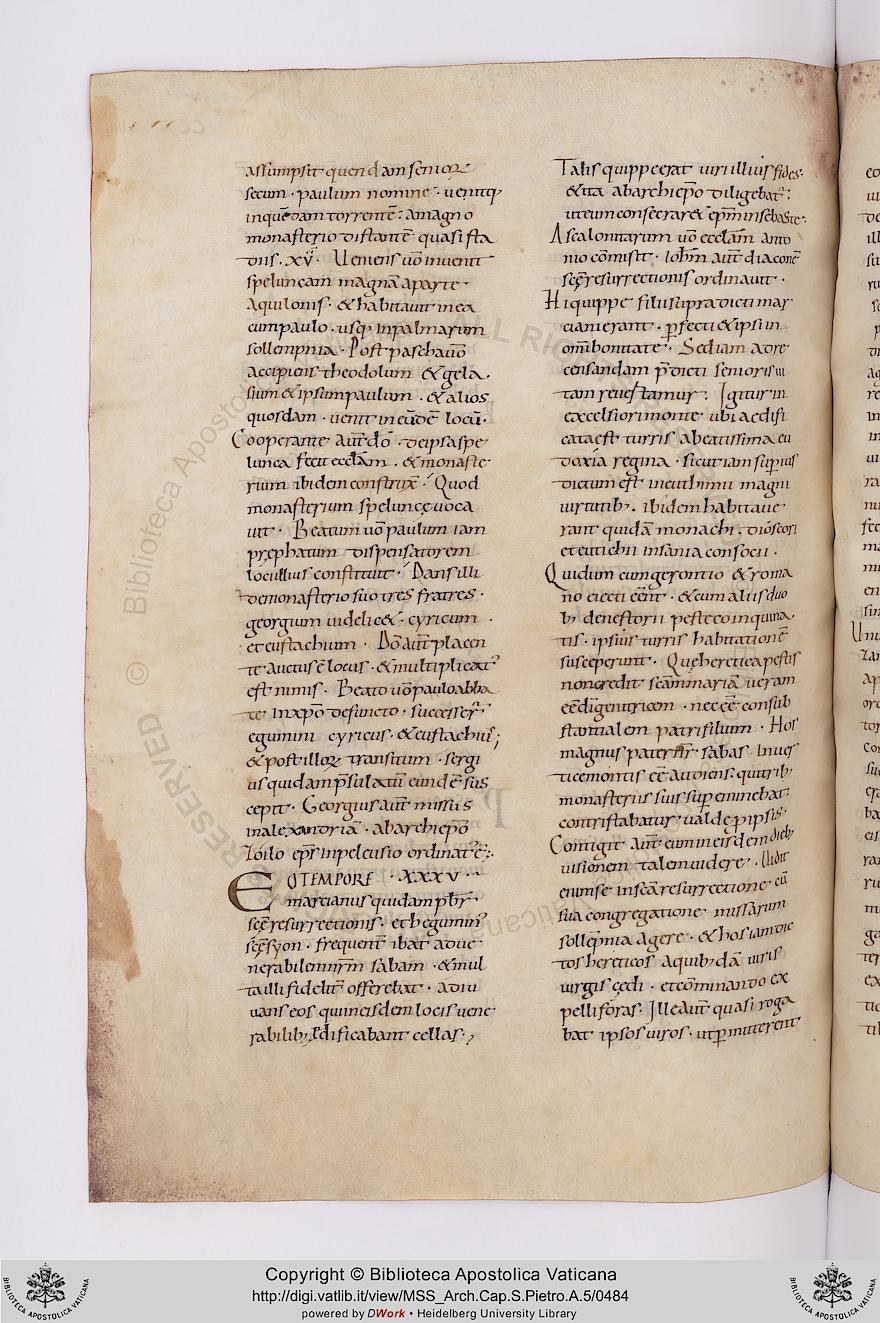 assumpsit quendam seniorē
secum · paulum nomine · uenitq;
inquēdam torrentē : amagno
monasterio distantē quasi sta
diis · xv · Ueniens ūo inuenit
speluncam magnā aparte
Aquilonis · & habitauit inea
cum paulo · usq; in palmarum
sollempnia · Post pascha ūo
accipiens theodolum & gela
sium & ipsum paulum · & alios
quosdam · uenit in eūdē locū ·
Cooperante aut̄ dō · de ipsa spe
lunca fecit ecclā̄m · & monaste
rium ibidem construx̄ · Quod
monasterium speluncę uoca
uit · Beatum ūo paulum iam
pręphatum dispensatorem
loci illius constituit · Dans illi
demonasterio suo tres fratres ·
georgium uidelic& · cyricum ·
et eustachium · Dō aut̄ placen
te auctus ē locus · & multiplicat᾿
est nimis · Beato ūo paulo abba
te inxp̄o defuncto · successer̄
egumini cyricus · & eustachius ;
& post illoꝝ transitum · sergi
us quidam p̄sulatū eiusdē sus
cepit · Georgius aut̄ missus
inalexandriā · abarchiep̄o
Zoilo ep̄s inpelusio ordinat᾿ ē ;
EO TEMPORE · XXXV ·
marcianus quidam pb̄r
sc̄ę resurrectionis · et hegumin᾿
sc̄ę syon · frequent̄ ibat adue
nerabilem nr̄m sabam · & mul
ta illi fidelit̄ offerebat · Adiu
uans eos qui ineisdem locis uene
rabilib; ędificabant cellas ;
Talis quippe erat uiri illius fides ·
& ita abarchiep̄o diligebat᾿ :
ut eum consecrar& ep̄m insebaste ·
Ascalonitarum ūo ecclā̄m anto
nio cōmisit · Ioh̄m aut̄ diaconē
sc̄ę resurrectionis ordinauit ·
Hi quippe filii supradicti mar
ciani erant · p̄fecti & ipsi in
om̄i bonitate · Sed iam ad re
censandam p̄dicti senioris ui
tam reuertamur · Igitur in
excelsiori monte ubi aedifi
cata est turris abeatissima eu
doxia regina · sicut iam supius
dictum est ineuthimii magni
uirtutib; · ibidem habitaue
rant quidā monachi · dioscori
et eutichii insania consocii ·
Qui dum cum gerontio & roma
no eiecti eēnt · & cum aliis duo
b; denestorii peste coinquina
tis · ipsius turris habitationē
susceperunt · Quę heretica pestis
non credit sc̄am mariā ueram
eē di genitricem · nec eē consub
stantialem patri filium · Hos
magnus pater nr̄ sabas Inuer
tice montis eē audiens · qui trib;
monasteriis suis sup eminebat ·
contristabatur ualde p̄ ipsis ·
Contigit aut̄ eum ineisdem dieb;
uisionem talem uidere · Uidit
enim se insc̄a resurrectione cū
sua congregatione missarum
sollēpnia agere · & hos iamdic
tos hereticos aquib; dā uiris
uirgis cędi · et cōminando ex
pelli foras · Ille aut̄ quasi roga
bat ipsos uiros · ut p̄mitterent
Copyright © Biblioteca Apostolica Vaticana
http://digi.vatlib.it/view/MSS_Arch.Cap.S.Pietro.A.5/0484
powered by DWork • Heidelberg University Library